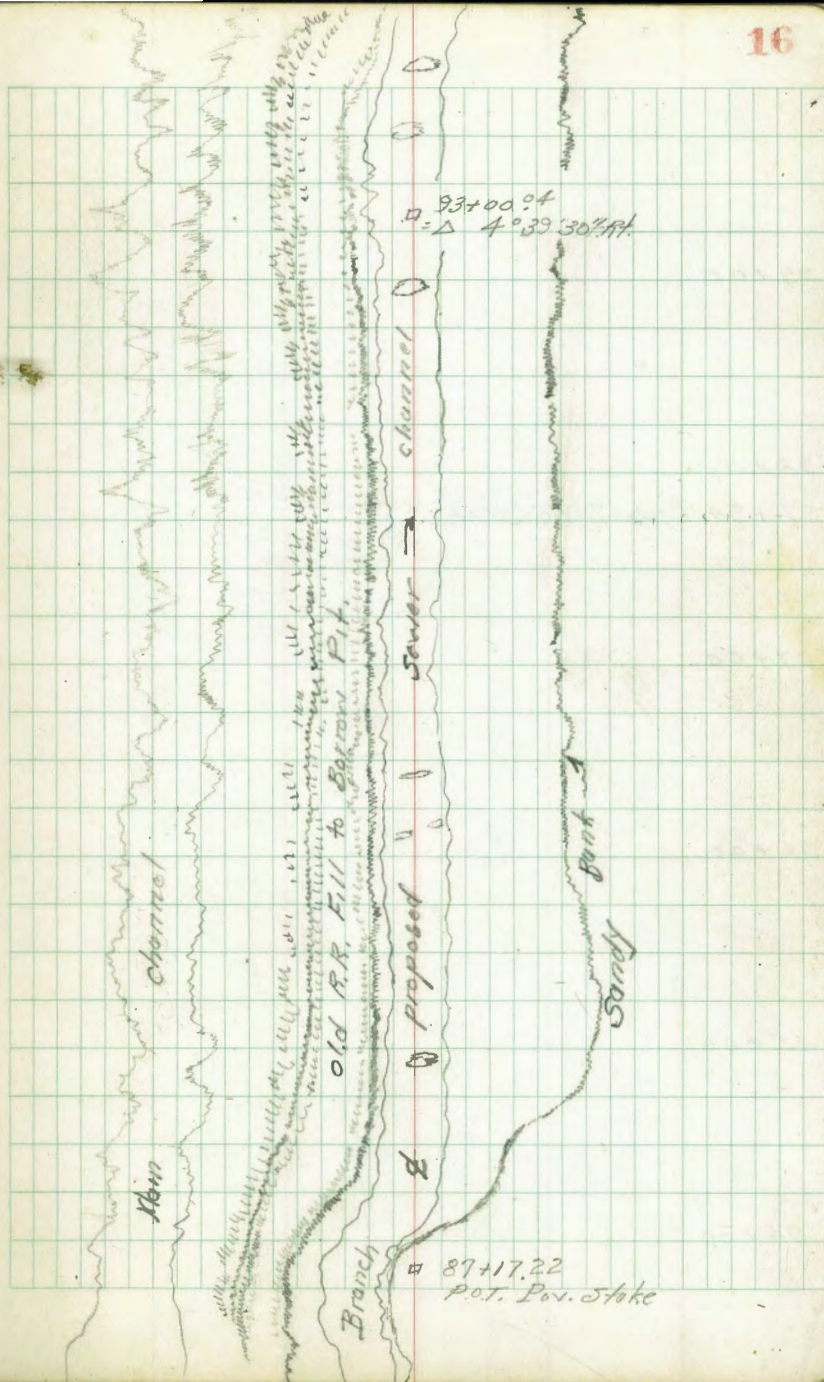 16
93+00.04
=Δ 4°39'30" Rt.
Main Channel
Old R.R. Fill to Borrow Pit.
℄ proposed Sewer → channel
Sandy Bank
Branch
87+17.22
P.O.T. Stake